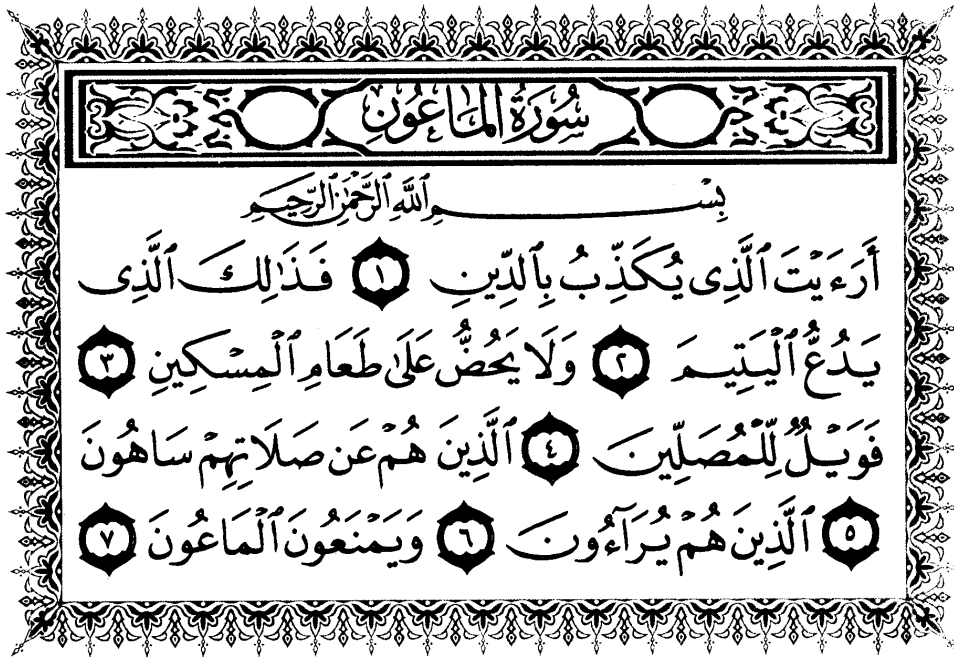 سُورَةُ المَاعُونِ
بِسْمِ ٱللَّهِ ٱلرَّحْمَٰنِ ٱلرَّحِيمِ
أَرَءَيْتَ ٱلَّذِى يُكَذِّبُ بِٱلدِّينِ ١ فَذَٰلِكَ ٱلَّذِى
يَدُعُّ ٱلْيَتِيمَ ٢ وَلَا يَحُضُّ عَلَىٰ طَعَامِ ٱلْمِسْكِينِ ٣
فَوَيْلٌ لِّلْمُصَلِّينَ ٤ ٱلَّذِينَ هُمْ عَن صَلَاتِهِمْ سَاهُونَ
٥ ٱلَّذِينَ هُمْ يُرَآءُونَ ٦ وَيَمْنَعُونَ ٱلْمَاعُونَ ٧